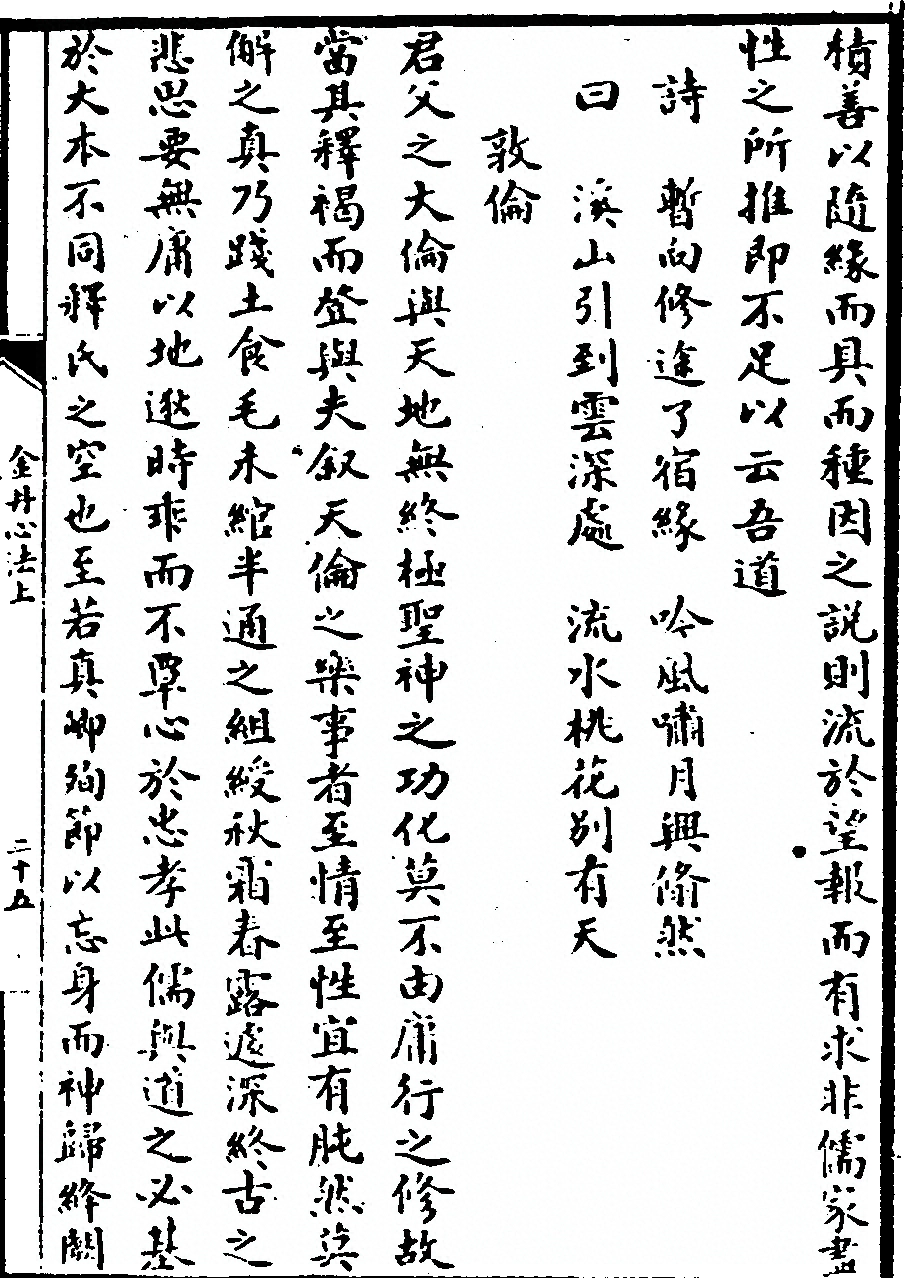 積善以隨緣而具而種因之說則流於望報而有求非儒家盡
性之所推即不足以云吾道
詩　暫向修途了宿緣　吟風嘯月興翛然
曰　溪山引到雲深處　流水桃花別有天
敦倫
君父之大倫與天地無終極聖神之功化莫不由庸行之修故
當其釋褐而登與夫叙天倫之樂事者至情至性宜有肫然莫
解之真乃踐土食毛未綰半通之組綬秋霜春露遽深終古之
悲思要無庸以地逖時乖而不覃心於忠孝此儒與道之必基
於大本不同釋氏之空也至若真卿殉節以忘身而神歸絳闕
金丹心法上
二十五